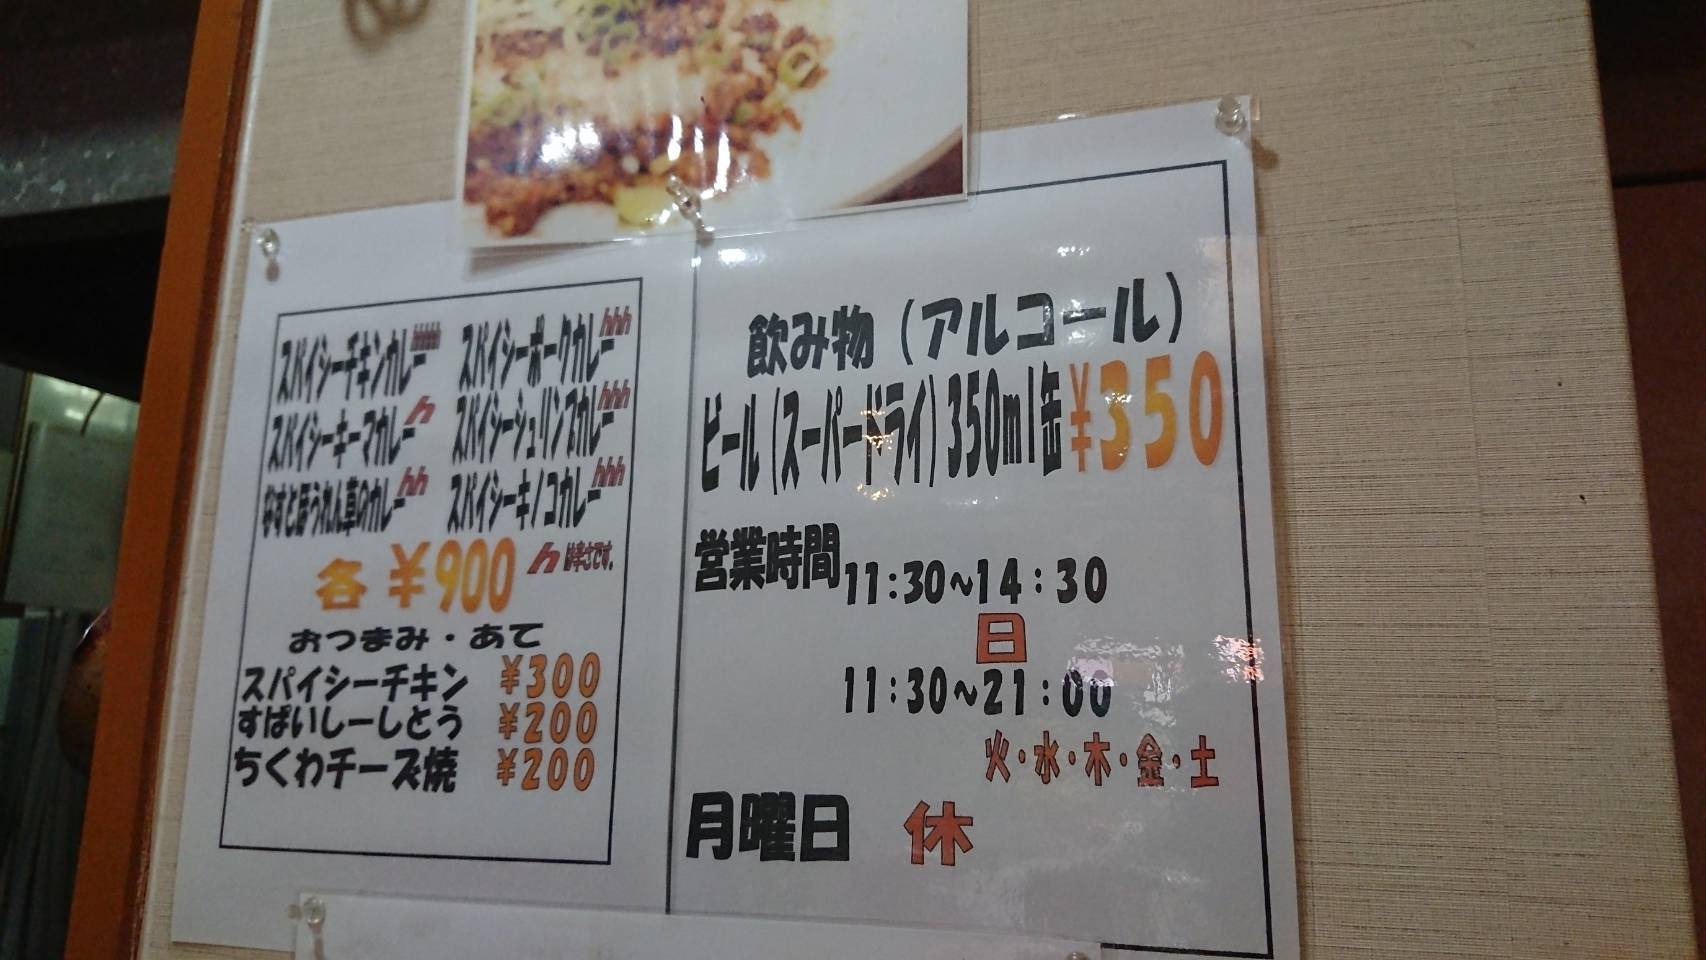 スパイシーチキンカレーhhhhh
スパイシーポークカレーhhh
スパイシーキーマカレーh
スパイシーシュリンプカレーhhh
なすとほうれん草のカレーhh
スパイシーキノコカレーhhh
各 ¥900
hは辛さです。
おつまみ・あて
スパイシーチキン ¥300
すぱいしーしとう ¥200
ちくわチーズ焼 ¥200
飲み物（アルコール）
ビール(スーパードライ)350ml缶¥350
営業時間11:30~14:30
日
11:30~21:00
火・水・木・金・土
月曜日 休